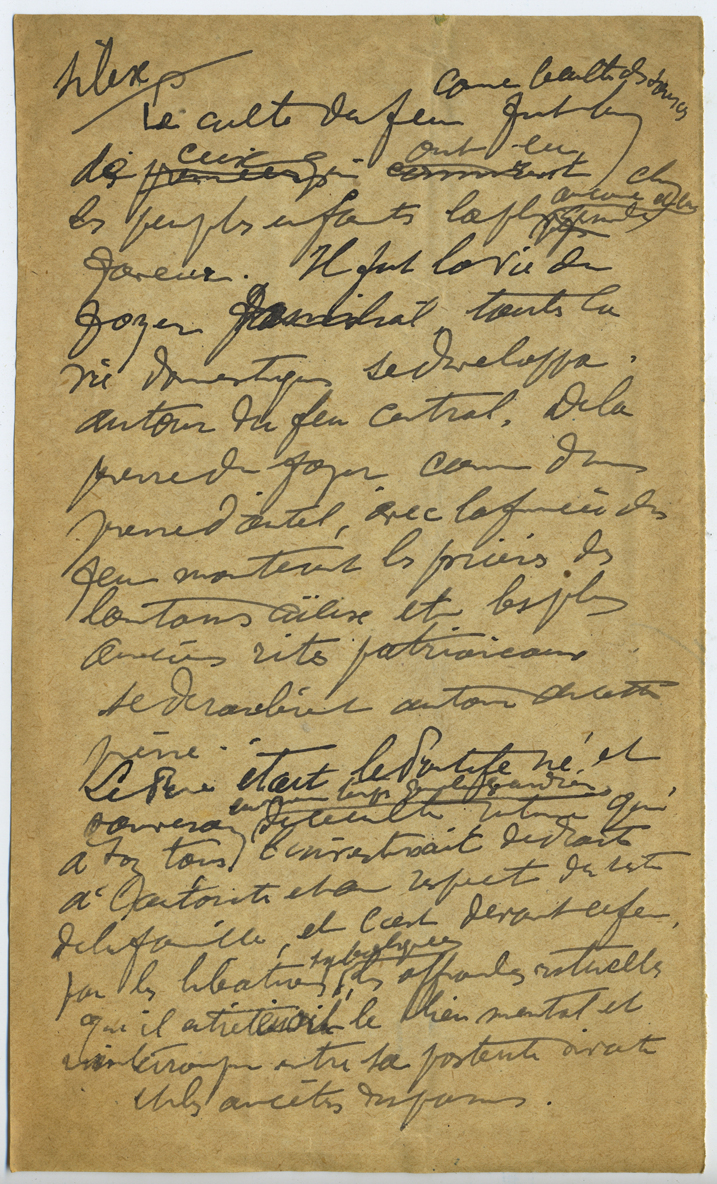 Silex
come le culte des sources
Le culte du feu fut l'un
ceux ont eu
de qui
les peuples enfants la plus
faveur. Il fut la vie du
foyer toute la
vie domestique se developpa
autour du feu central. De la
pierre du foyer come d'une
pierre d'autel, avec la fumée du
feu montèrent les prières des
lointains aïeux et les plus
anciens rites patriarcaux
se déroulèrent autour de cette
pierre.
Le Père était le Pontife né et
en même temps que le gardien
souverain de ce culte qui
à son tour l'investissait de droits
à l'autorité et au respect du reste
de la famille, et c'est devant ce feu,
symboliques
par les libations, les offrandes rituelles
qu'il le lien mental et
entre sa postérité vivante
et les ancêtres disparus.